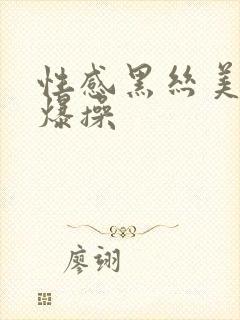 性感黑丝美
爆操
廖翊